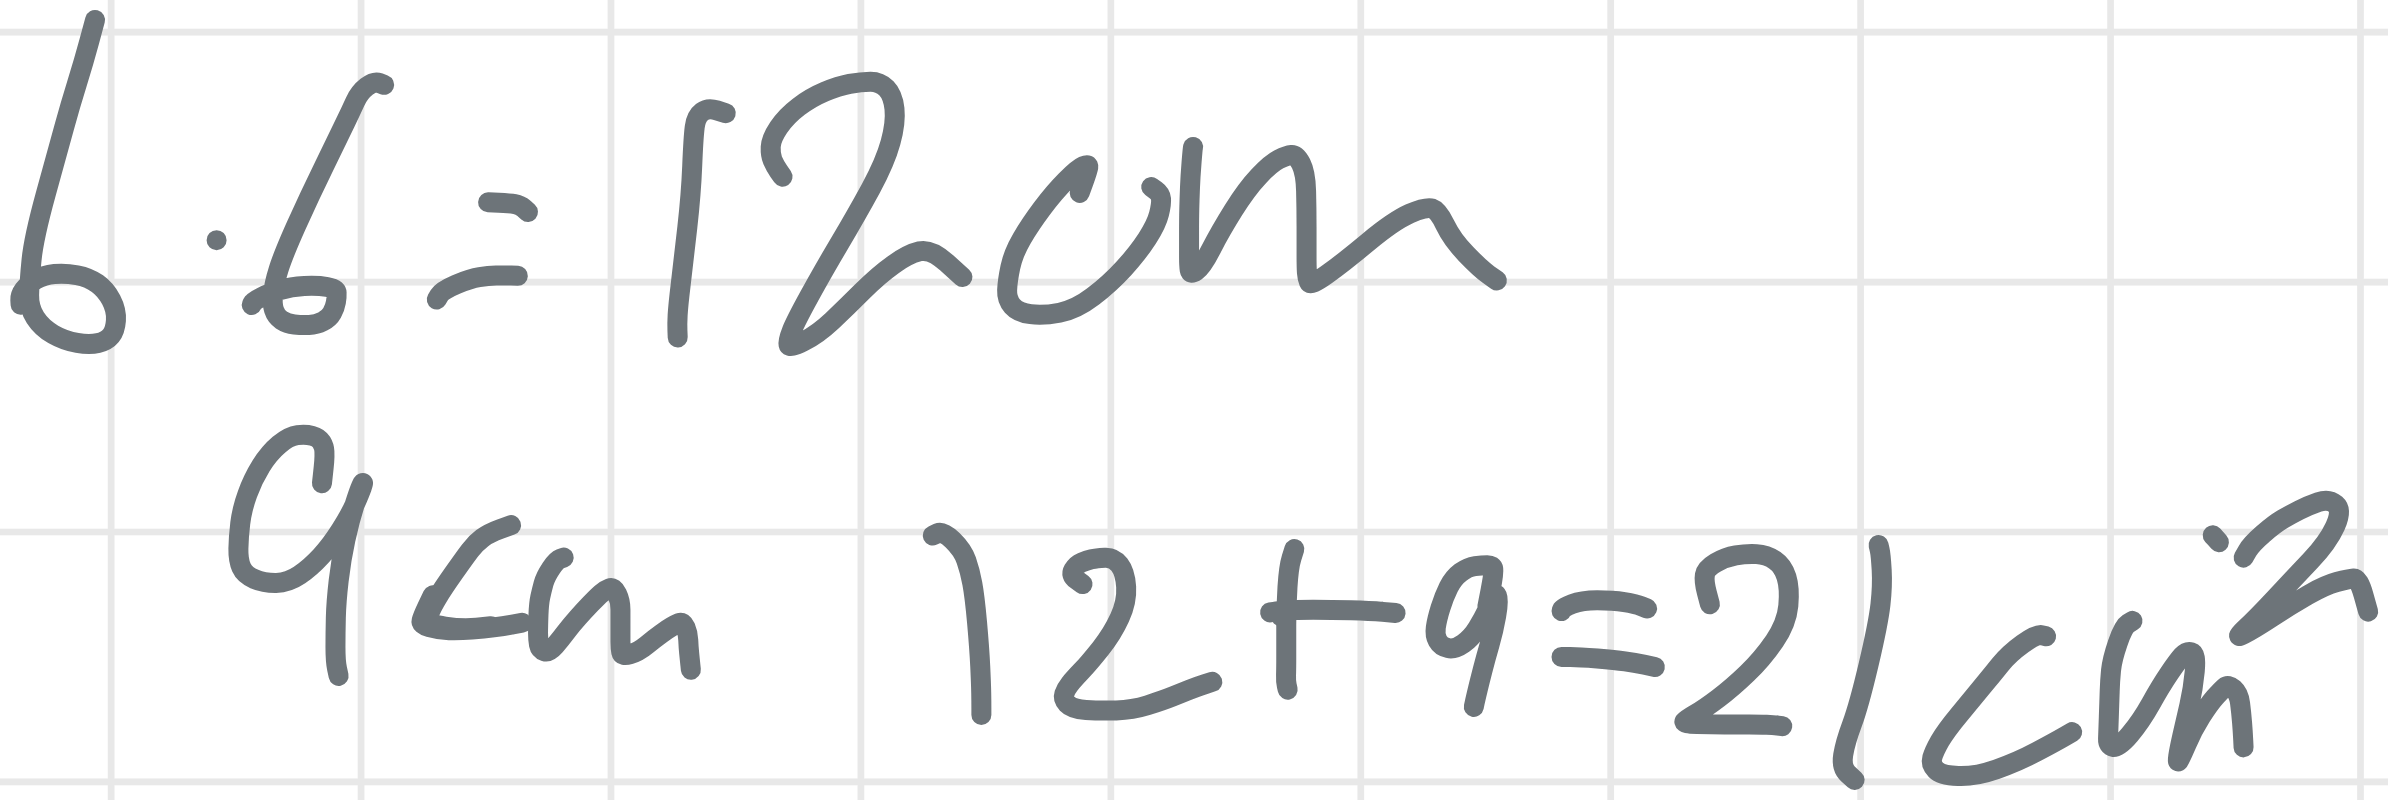 6 · 6 = 12 cm
9 cm 12 + 9 = 21 cm²